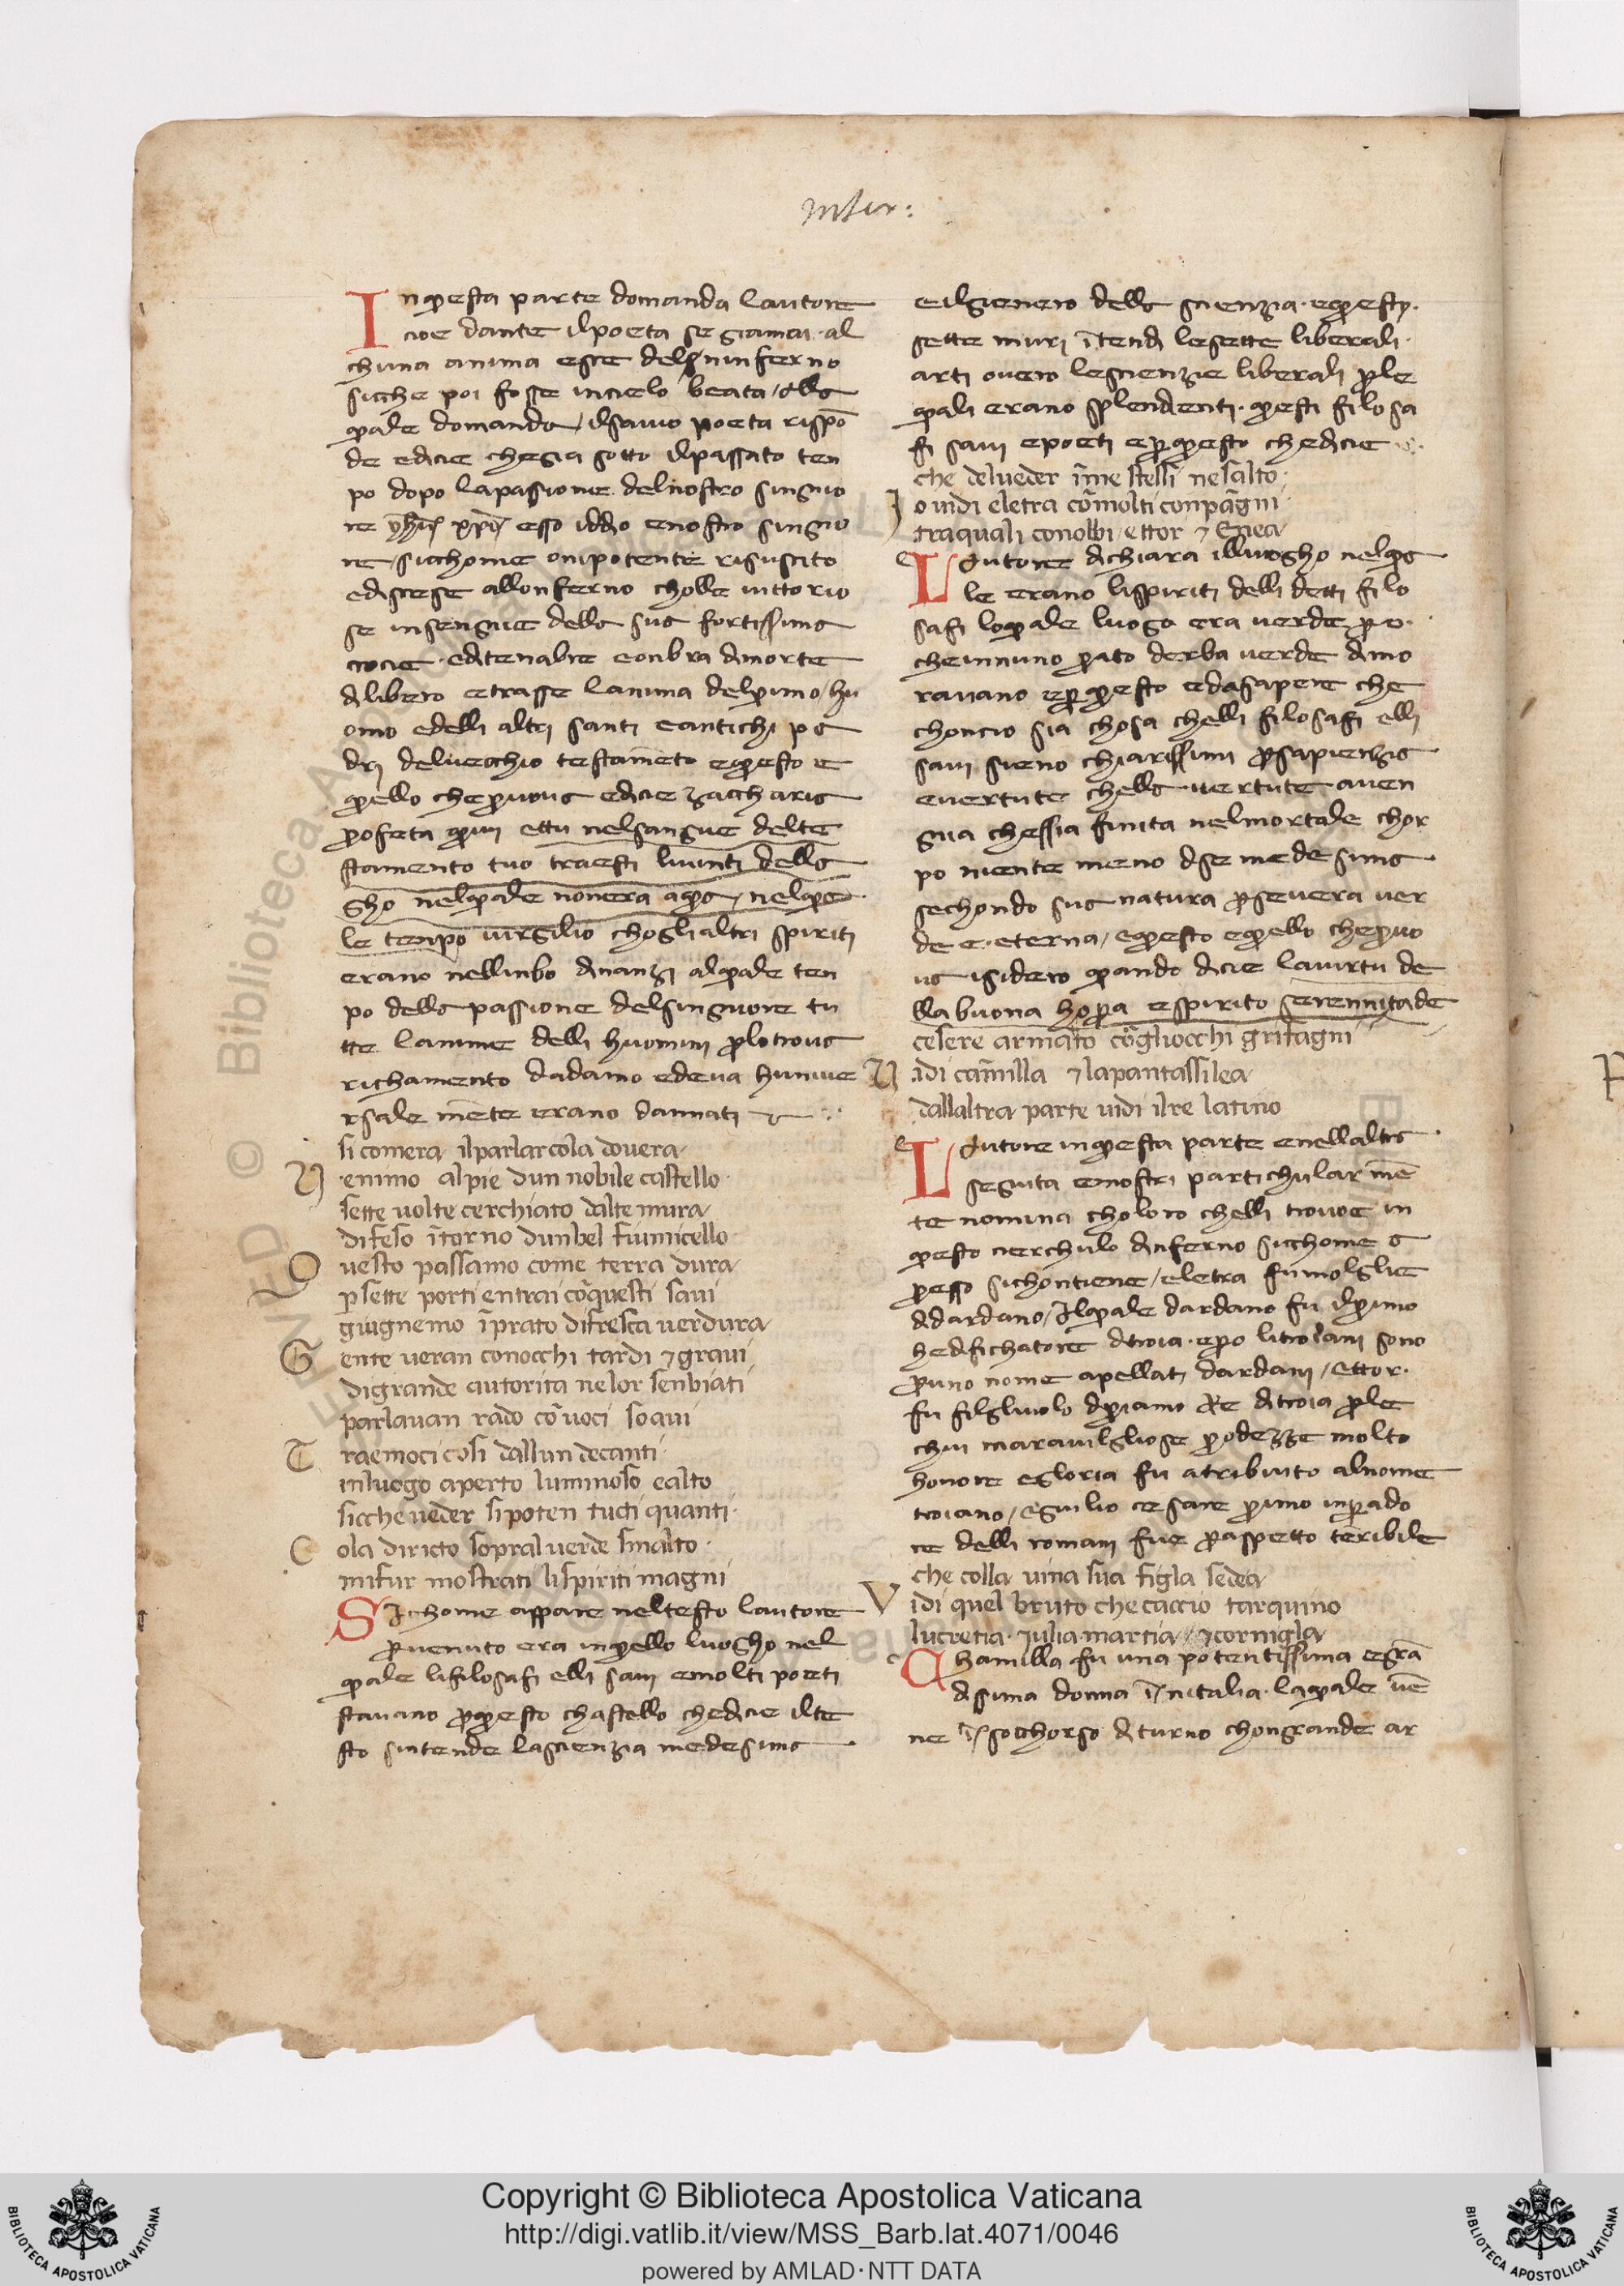 Infer:
Inquesta parte domanda lautore
cioe dante ilpoeta se giamai · al
chuna anima esce delsuinferno
sicche poi fosse incielo beata / alla
quale domanda / ilsavio poeta rispō
de edicie chegia sotto ilpassato ten
po dopo lapasione delnostro singnio
re yhū xpō esso iddio enostro singnio
re / sicchome onipotente risuscito
ediscese allonferno cholle vittorio
se insengnie della sua fortissima
crocie · editenabre eonbra dimorte
diliberò etrasse lanima delprimo / hu
omo edelli altri santi eantichi pa
dri delvecchio testamēto equesto e
quello chepruova edicie zaccharia
profeta quivi ettu nelsangue delte
stamento tuo traesti livinti della
gho nelquale nonera aqua / nelqua
le tenpo virgilio choglialtri spiriti
erano nellinbo dinanzi alquale ten
po della passione delsingniore tu
tte lanime delli huomini perlotrova
richamento dadamo edeva hunive
rsale mēte erano dannati
si comera ilparlarcola dovera
Venimo alpie dun nobile castello
sette volte cerchiato dalte mura
difeso ītorno dunbel fiumicello
Ovesto passamo come terra dura
p sette porti entrai cōquesti savi
giugnemo īprato difresca verdura
Gente veran conocchi tardi ⁊ gravi
digrande autorita nelor senbiati
parlavan rado cōvoci soavi
Traemoci cosi dallun decanti
inluogo aperto luminoso ealto
sicche veder sipoten tucti quanti
Cola diricto sopralverde smalto
mifur mostrati lispiriti magni
Sicchome appare neltesto lautore
pervenuto era inquello luogho nel
quale lifilosafi elli savi emolti poeti
stavano perquesto chastello chedicie ilte
sto sintende lascienzia medesima
eilgienero della scienzia · equesti
sette muri ītendi lesette liberali
arti overo lescienzie liberali perle
quali erano splendenti · questi filosa
fi savi epoeti eperquesto chedicie
che delveder īme stelli nesalto
Io vidi eletra cōmolti conpagni
traquali conobbi / ettor ⁊ Enea
Lautore dichiara illuogho nelqua
le erano lispiriti delli detti filo
safi loquale luogo era verde pero
cheinnuno prato derba verde dimo
ravano eperquesto edasapere che
choncio sia chosa chelli filosafi elli
savi sieno chiarissimi persapienzia
evertute chella vertute aven
gnia chessia finita nelmortale chor
po niente meno dise medesima
sechondo sua natura persevera ver
de e · eterna / equesto equello chepruo
va isidero quando dicie lavirtu de
lla buona hopera espirito serennitade
cesere armato cōgliocchi grifagni
Vidi camilla ⁊ lapantassilea
dallaltra parte vidi ilre latino
Lautore inquesta parte enellaltra
seguita emostri partichular mē
te nomina choloro chelli trovoe in
questo cierchulo dinferno sicchome a
presso sichontiene / eletra fumolglie
didardano / Ilquale dardano fu ilprimo
hedifichatore ditroia · epero litroiani sono
peruno nome apellati dardani / Ettor
fu filgliuolo dipriamo Re ditroia perle
chui maravilgliose prodezze molto
honore egloria fu atribuito alnome
troiano / Egiulio cesare primo inperado
re delli romani fue peraspetto teribile
che colla vina sua figla sedea
Vidi quel bruto che caccio tarquino
lucretia · Iulia martia / ⁊ cornigla
Chamilla fu una potentissima egrā
disima donna ī nitalia · laquale vē
ne ī socchorso di turno chongrande ar
Copyright © Biblioteca Apostolica Vaticana
http://digi.vatlib.it/view/MSS_Barb.lat.4071/0046
powered by AMLAD·NTT DATA
BIBLIOTECA APOSTOLICA VATICANA
BIBLIOTECA APOSTOLICA VATICANA